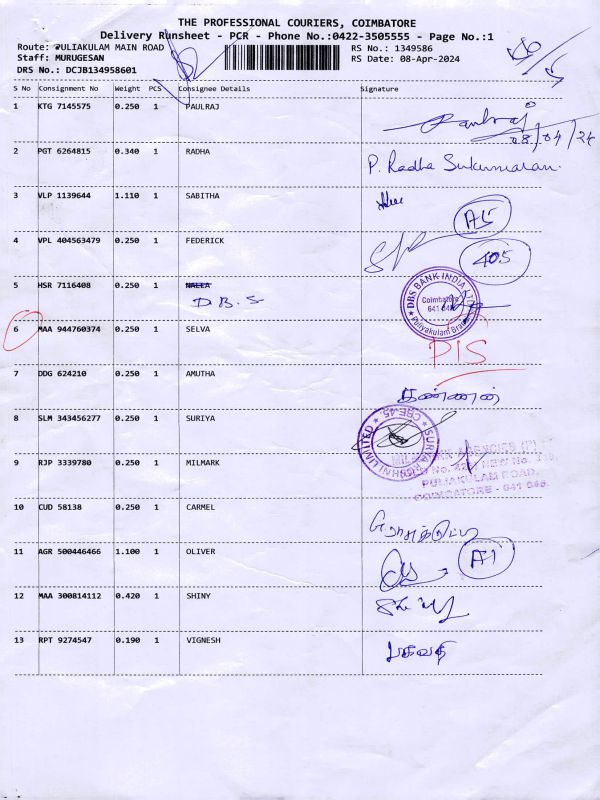 THE PROFESSIONAL COURIERS, COIMBATORE
Delivery Runsheet - PCR - Phone No.:0422-3505555 - Page No.:1
Route: PULIAKULAM MAIN ROAD RS No.: 1349586
Staff: MURUGESAN RS Date: 08-Apr-2024
DRS No.: DCJB134958601
S No Consignment No Weight PCS Consignee Details Signature
1 KTG 7145575 0.250 1 PAULRAJ Paulraj
08/04/24
2 PGT 6264815 0.340 1 RADHA P. Radha Sukumaran.
3 VLP 1139644 1.110 1 SABITHA
A5
4 VPL 404563479 0.250 1 FEDERICK 405
5 HSR 7116408 0.250 1 NALLA
D.B.S
DBS BANK INDIA LTD
Coimbatore
641 045
Puliyakulam Branch
6 MAA 944760374 0.250 1 SELVA PIS
7 DDG 624210 0.250 1 AMUTHA கண்ணன்
8 SLM 343456277 0.250 1 SURIYA
CBE-45.
9 RJP 3339780 0.250 1 MILMARK
PULIAKULAM ROAD,
COIMBATORE - 641 045.
10 CUD 58138 0.250 1 CARMEL
11 AGR 500446466 1.100 1 OLIVER A1
12 MAA 300814112 0.420 1 SHINY
13 RPT 9274547 0.190 1 VIGNESH பகவதி